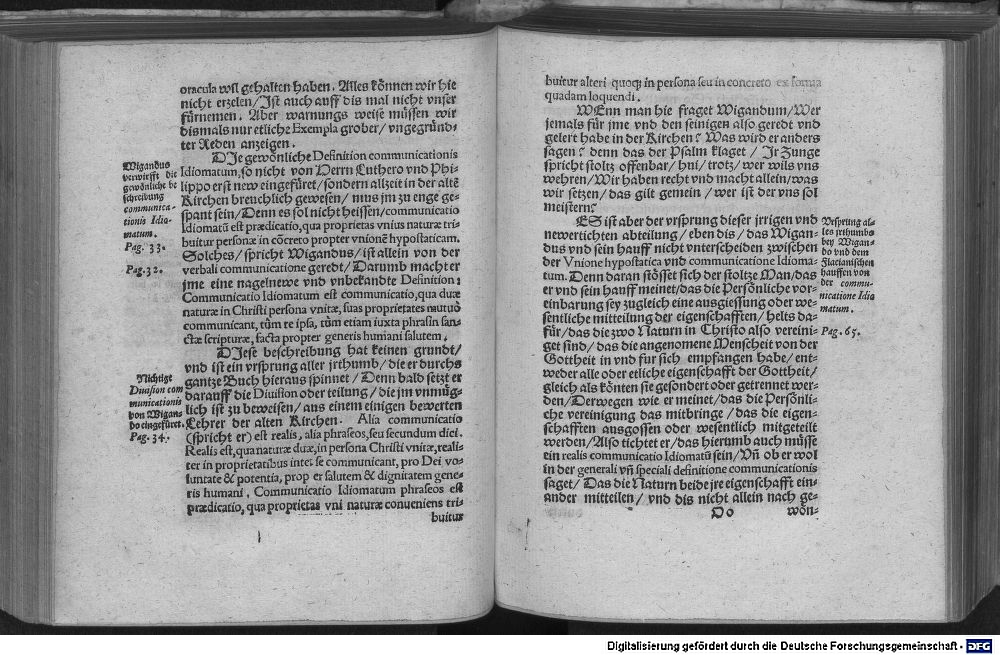 oracula wil gehalten haben. Alles können wir hie
nicht erzelen/Ist auch auff dis mal nicht vnser
fürnemen. Aber warnungs weise müssen wir
dismals nur etliche Exempla grober/vngegründ-
ter Reden anzeigen.
DIe gewönliche Definition communicationis
Idiomatum, so nicht von Herrn Luthero vnd Phi-
lippo erst new eingefüret/sondern allzeit in der altē
Kirchen breuchlich gewesen/ mus jm zu enge ge-
spant sein/Denn es sol nicht heissen/communicatio
Idiomatū est prædicatio, qua proprietas vnius naturæ tri-
buitur personæ in cōcreto propter vnionē hypostaticam.
Solches/spricht Wigandus/ist allein von der
verbali communicatione geredt/Darumb macht er
jme eine nagelnewe vnd vnbekandte Definition:
Communicatio Idiomatum est communicatio, qua duæ
naturæ in Christi persona vnitæ, suas proprietates mutuò
communicant, tùm re ipsa, tùm etiam iuxta phrasin san-
ctæ scripturæ, facta propter generis humani salutem.
DIese beschreibung hat keinen grundt/
vnd ist ein vrsprung aller jrthumb/die er durchs
gantze Buch hieraus spinnet/Denn bald setzt er
darauff die Diuision oder teilung/die jm vnmüg-
lich ist zu beweisen/aus einem einigen bewerten
Lehrer der alten Kirchen. Alia communicatio
(spricht er) est realis, alia phraseos, seu secundum dici.
Realis est, qua naturæ duæ, in persona Christi vnitæ, reali-
ter in proprietatibus inter se communicant, pro Dei vo-
luntate & potentia, propter salutem & dignitatem gene-
ris humani. Communicatio Idiomatum phraseos est
prædicatio, qua proprietas vni naturæ conueniens tri-
buitur
Wigandus
verwirfft die
gewönliche be
schreibung
communica-
tionis Idio-
matum.
Pag. 33.
Pag. 32.
Nichtige
Diuision com
municationis
von Wigan-
do eingefüret.
Pag. 34.
buitur alteri quoq; in persona seu in concreto ex forma
quadam loquendi.
WEnn man hie fraget Wigandum/Wer
jemals für jme vnd den seinigen also geredt vnd
gelert habe in der Kirchen? Was wird er anders
sagen? denn das der Psalm klaget/ Ir Zunge
spricht stoltz offenbar/ hui/ trotz/ wer wils vns
wehren/Wir haben recht vnd macht allein/was
wir setzen/das gilt gemein / wer ist der vns sol
meistern?
ES ist aber der vrsprung dieser jrrigen vnd
newertichten abteilung/eben dis/das Wigan-
dus vnd sein hauff nicht vnterscheiden zwischen
der Vnione hypostatica vnd communicatione Idioma-
tum. Denn daran stösset sich der stoltze Man/das
er vnd sein hauff meinet/das die Persönliche vor-
einbarung sey zugleich eine ausgiessung oder we-
sentliche mitteilung der eigenschafften/ helts da-
für/das die zwo Naturn in Christo also vereini-
get sind/das die angenomene Menscheit von der
Gottheit in vnd fur sich empfangen habe/ ent-
weder alle oder etliche eigenschafft der Gottheit/
gleich als könten sie gesondert oder getrennet wer-
den/Derwegen wie er meinet/das die Persönli-
che vereinigung das mitbringe / das die eigen-
schafften ausgossen oder wesentlich mitgeteilt
werden/Also tichtet er/das hierumb auch müsse
ein realis communicatio Idiomatū sein/Vñ ob er wol
in der generali vñ speciali definitione communicationis
saget/ Das die Naturn beide jre eigenschafft ein-
ander mitteilen / vnd dis nicht allein nach ge-
Oo wön-
Vrsprung al-
les jrthumbs
bey Wigan-
do vnd dem
Flacianischen
hauffen von
der commu-
nicatione Idio
matum.
Pag. 65.
Digitalisierung gefördert durch die Deutsche Forschungsgemeinschaft - DFG